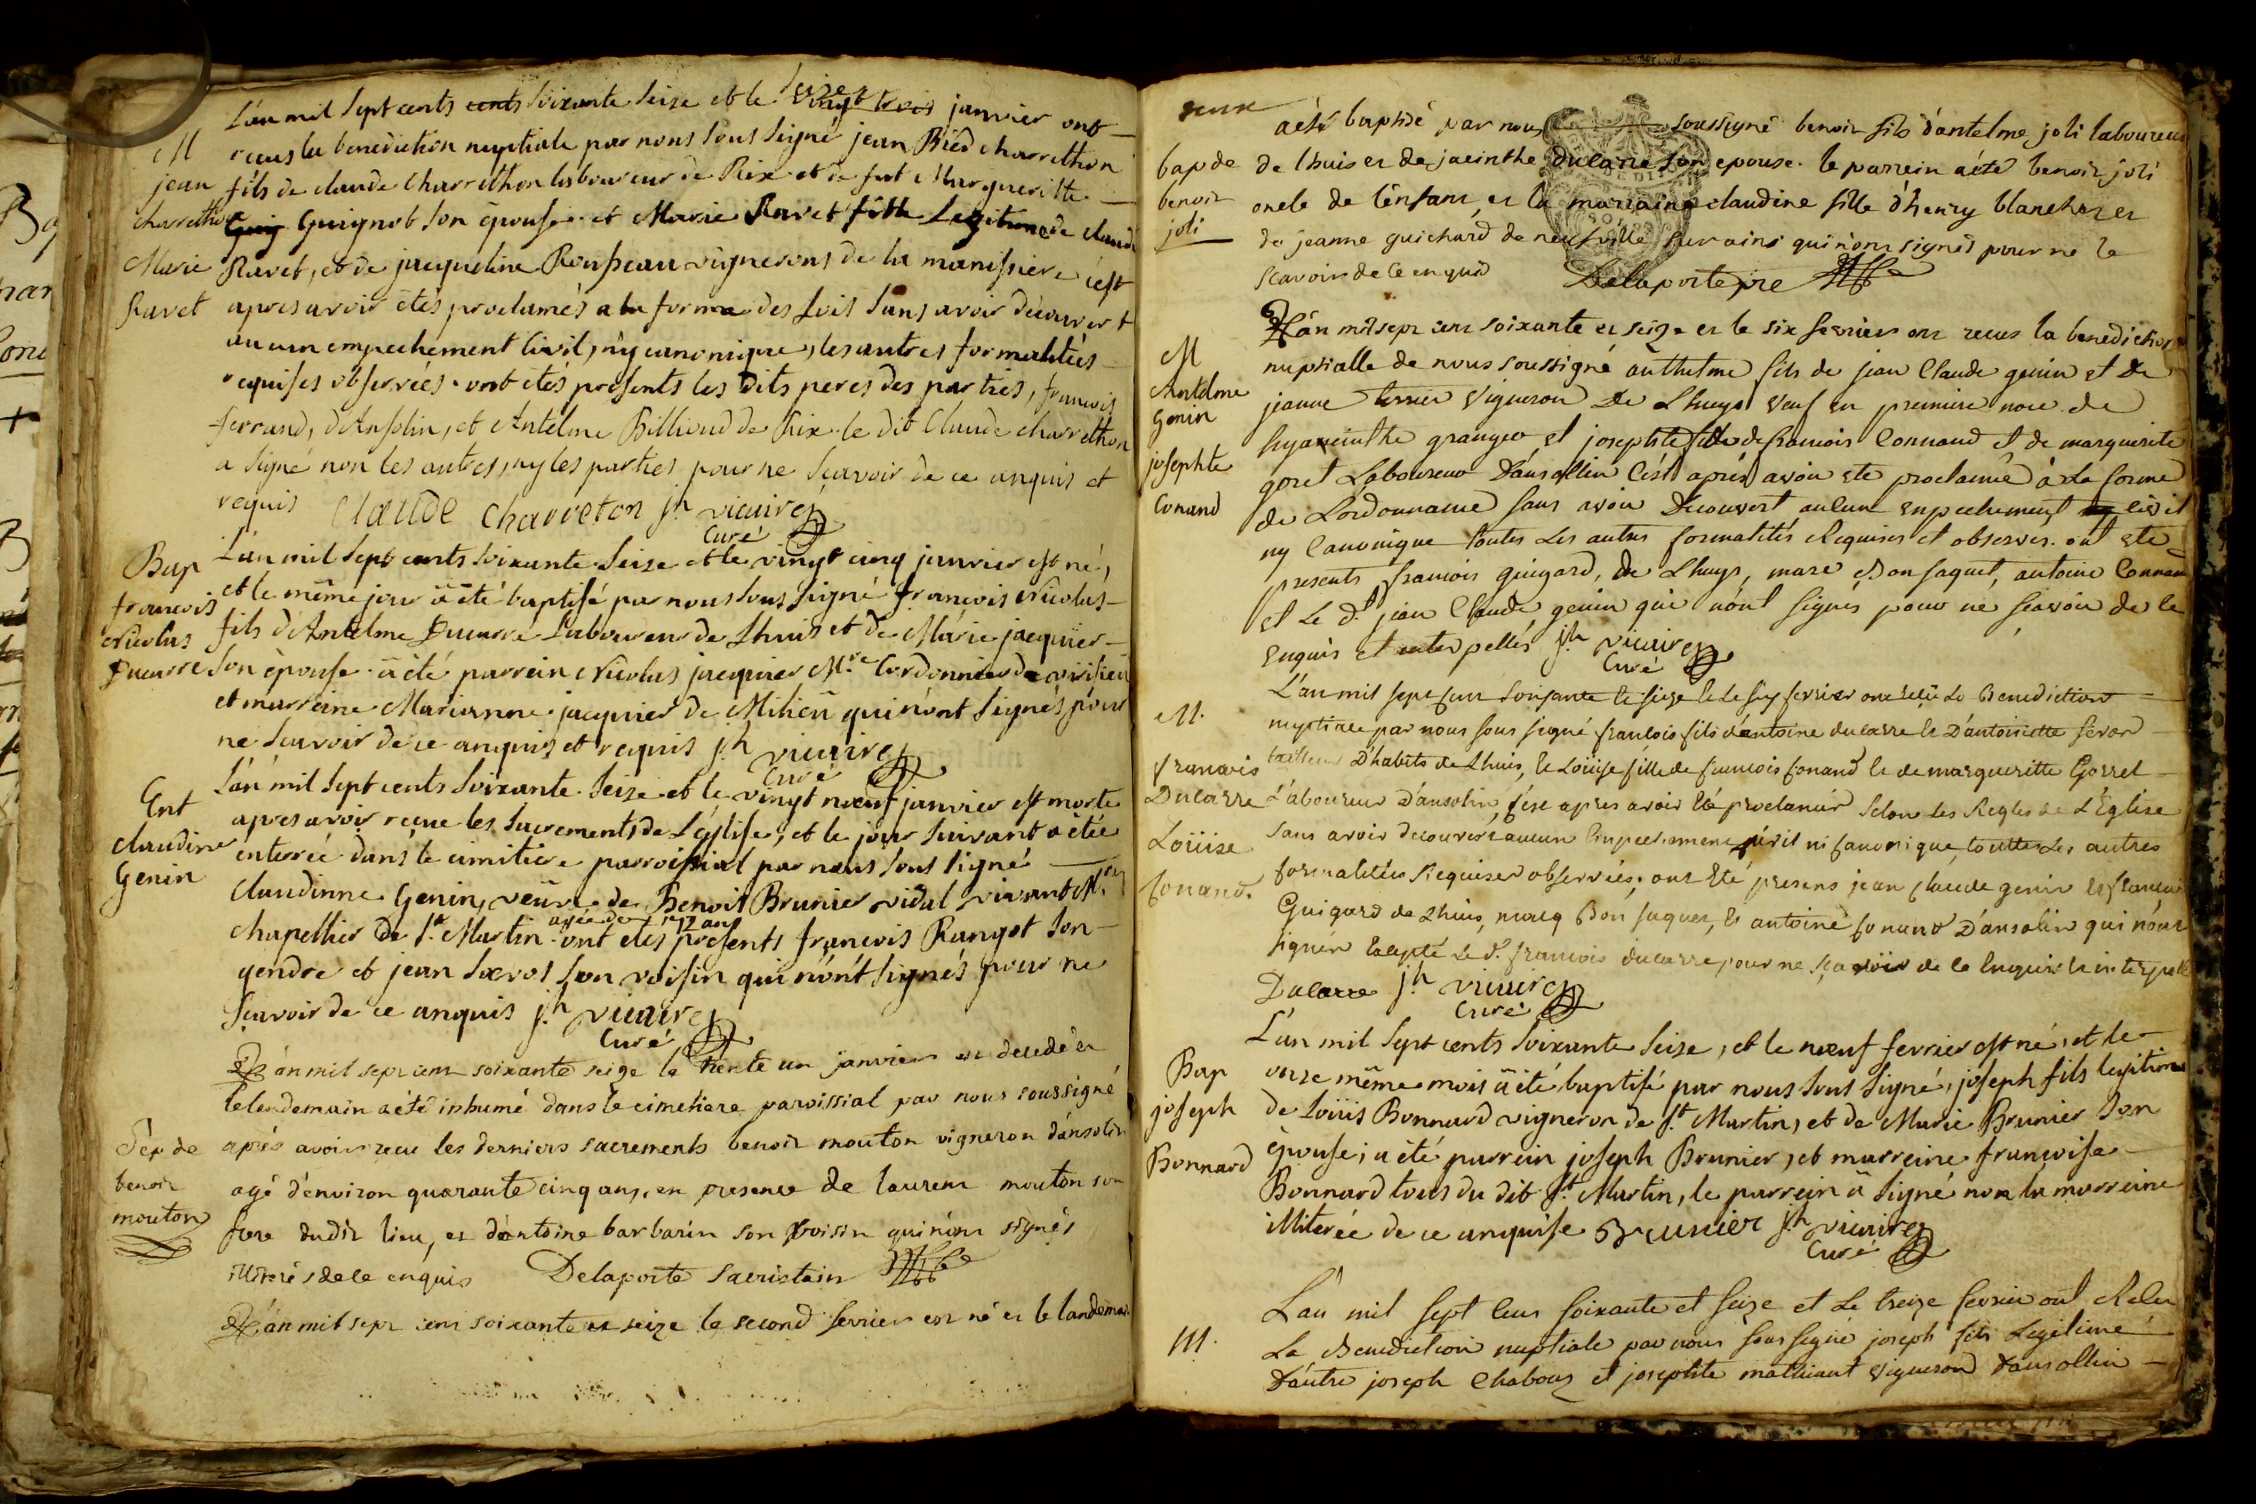 L'an mil sept cents cents soixante seize et le vingt trois seizes janvier ont
M
recus la benediction nuptiale par nous sous signé jean Bied charrethon
jean
fils de claude charrethon laboureur de Rix et de fut Marguerithe
charrethon
Guig Guignot son épouse et Marie Ravet fille Legitime de claude
Marie
Ravet, et de jacqueline Rousseau vignerons de la manissiere c'est
Ravet
apres avoir étés proclamés a la forme des Lois sans avoir découvert
aucun empechement Civil, n'y canonique, les autres formalitées
requises observées. ont étés présents les dits peres des parties, francois
ferrand, d'Ansolin, et Antelme Billioud de Rix. le dit Claude charrethon
a signé non les autres, ny les parties pour ne sçavoir de ce anquis et
requis Claude Charreton jh vicaires
Curé
Bap
L'an mil sept cents soixante seize et le vingt cinq janvier est né,
francois
et le même jour a été baptisé par nous sous signé francois Nicolas
Nicolas
fils d'Antelme Ducarre Laboureur de Lhuis et de Marie jacquier
Ducarre
son épouse. a été parrein Nicolas jacquier Mre Cordonnier de
et marreine Marianne jacquier de Milieu qui n'ont signés pour
ne scavoir de ce anquis et requis jh vicaires
Curé
Ent
L'an mil sept cents soixante seize et le vingt noeuf janvier est morte
claudine
apres avoir recue les sacrements de L'église, et le jour suivant a étée
Genin
enterrée dans le cimitiere parroissial par nous sous signé
claudinne Genin, veuve de Benoit Brunier vidal vivant Mre
chapellier de St. Martin agée de 72 ans ont etés présents francois Rangot son
gendre et jean son voisin qui n'ont signés pour ne
sçavoir de ce anquis jh vicaires
Curé
L'an mil sept cent soixante seize le trente un janvier est decedé et
le lendemain a été inhumé dans le cimetiere paroissial par nous soussigné
Sep de
après avoir recu les derniers sacrements benoit mouton vigneron d'ansolin
benoit
agé d'environ quarante cinq ans, en presence de laurent mouton son
mouton
frere dudit lieu, et d'antoine barbarin son voisin qui n'ont signés
illiterés de ce enquis Delaporte sacristain
L'an mil sept cent soixante et seize le second fevrier est né et le landemain
a été baptisé par nous soussigné benoit fils d'antelme joli laboureur
bap de
de lhuis et de jacinthe ducarre son epouse. le parrein a été benoit joli
benoit
oncle de l'enfant, et la marraine claudine fille d'henry blanchet et
joli
de jeanne guichard de neufville qui n'ont signés pour ne le
scavoir de ce enquis Delaporte
L'an mil sept cent soixante et seize et le six fevrier ont recus la benediction
M
nuptialle de nous soussigné anthelme fils de jean Claude genin et de
Antelme
jeanne terrier vigneron De Lhuys veuf en premiere noce de
Genin
hyaxcinthe granger et josephte fille de francois Connand et de marguerite
josephte
goret Laboureur D'ansollin C'est après avoir ete proclamé à la forme
Conand
de Lordonnance sans avoir Decouvert aulcun enpechement ny civil
ny Canonique toutes Les autres formalités Requises et observes. ont ete
presents francois guigard, de Lhuys, marc Bon jaquet, antoine Connand
et Le dt jean Claude genin qui n'ont signés pour ne sçavoir de ce
Enquis et interpellés jh vicaires
Curé
L'an mil sept cent soixante et seize et le six fevrier ont recu La Benediction
M.
nuptiale par nous sous signé francois fils d'antoine ducarre et D'antoinette
francois
tailleur D'habits de Lhuis, et Loüise fille de francois Conand et de margueritte Gorret
Ducarre
Laboureur D'ansolin, c'est apres avoir été proclamés selon les Regles de L'Eglise
Loüise
sans avoir decouvert aucun Empechement civil ni canonique, touttes Les autres
Conand.
formalitées Requises observées; ont Eté presens jean claude genin et francois
Guigard de Lhuis, marq Bon jaquet, et antoine Conand D'ansolin qui n'ont
signés Excepté Le dt francois ducarre pour ne sçavoir de ce Enquis et interpellé
Ducarre jh vicaires
Curé
L'an mil sept cents soixante seize, et le noeuf fevrier est né, et le
Bap
onze même mois a été baptisé par nous sous signé, joseph fils legitime
joseph
de Loüis Bonnard vigneron de St. Martin, et de Marie Brunier son
Bonnard
épouse; a été parrein joseph Brunier, et marreine francoise
Bonnard tous du dit St. Martin, le parrein a signé non la marreine
illiterée de ce anquise Brunier jh vicaires
Curé
L'an mil sept cens soixante et seize et Le treize fevrier ont
M.
La Benediction nuptiale par nous soussigné joseph fils Legitime
D'autre joseph Chabous et josephte mathiant vigneron d'ansollin